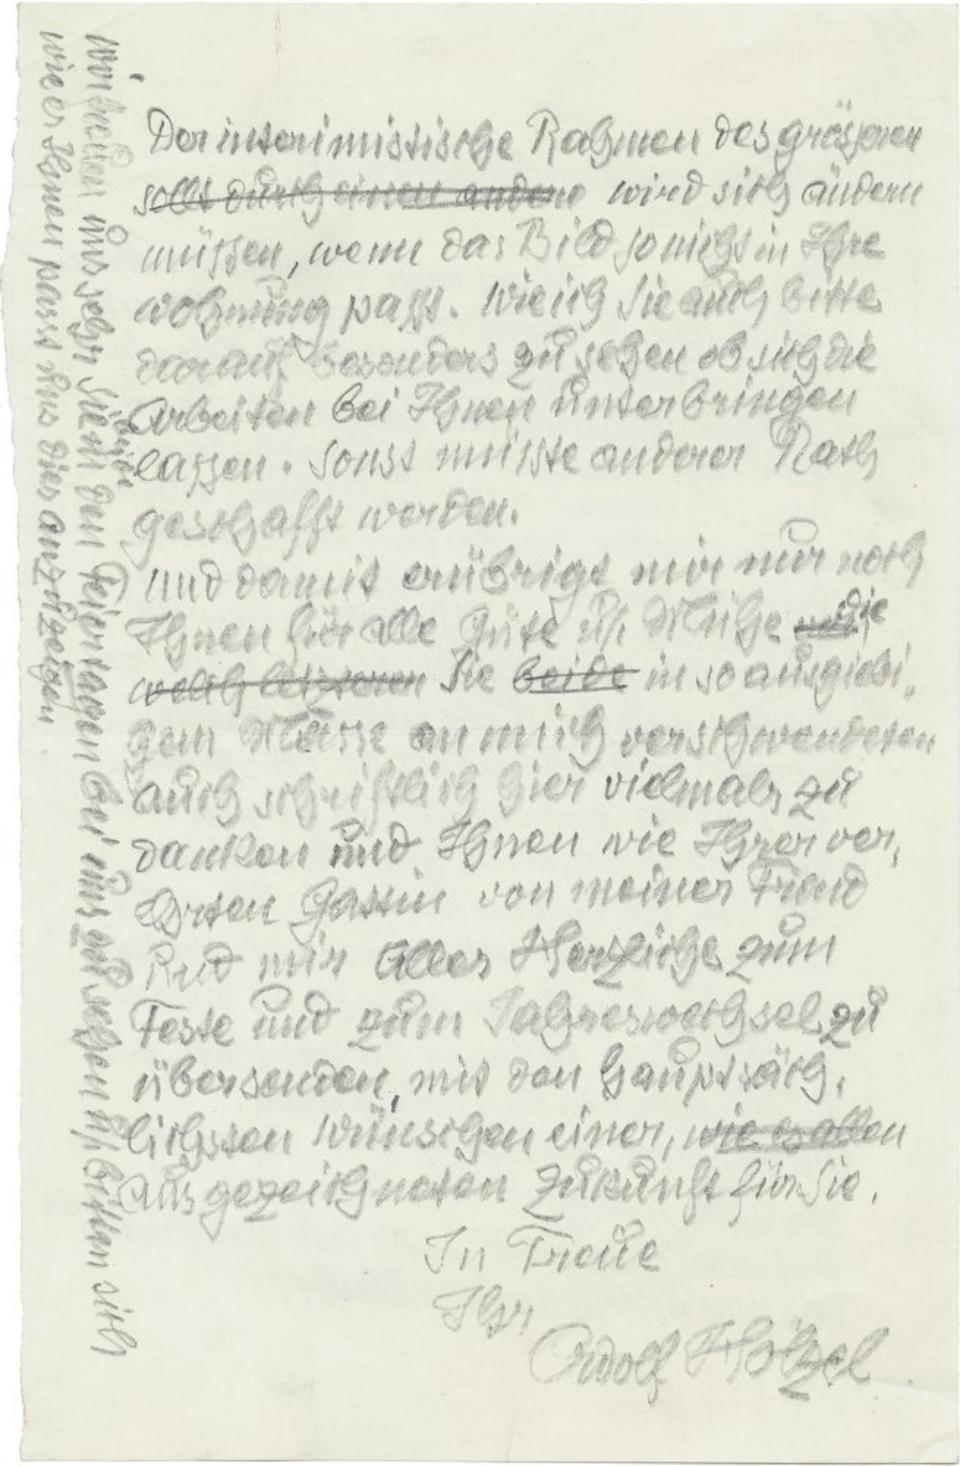 Der interimistische Rahmen des grösseren
sollte durch einen andere wird sich ändern
müssen, wenn das Bild so nicht in Ihre
Wohnung passt. Wie ich Sie auch bitte
darauf besonders zu sehen ob sich die
Arbeiten bei Ihnen unterbringen
lassen. Sonst müsste anderer Rath
geschafft werden.
Und damit erübrigt mir nur noch
Ihnen für alle Güte u. Mühe die
welch letzteren Sie beide in so ausgiebi„
gem Masse an mich verschwendeten
auch schriftlich hier vielmals zu
danken und Ihnen wie Ihrer ver„
ehrten Gattin von meiner Frau
und mir Alles Herzliche zum
Feste und zum Jahreswechsel zu
übersenden, mit den hauptsäch„
lichsten Wünschen einer, wie es allen
ausgezeichneten Zukunft für Sie.
In Treue
Ihr
Adolf Hölzel
Wir freuen uns sehr Sie beide in den Feiertagen bei uns zu sehen u. bitten sich
wie es Ihnen passt uns dies anzuzeigen.